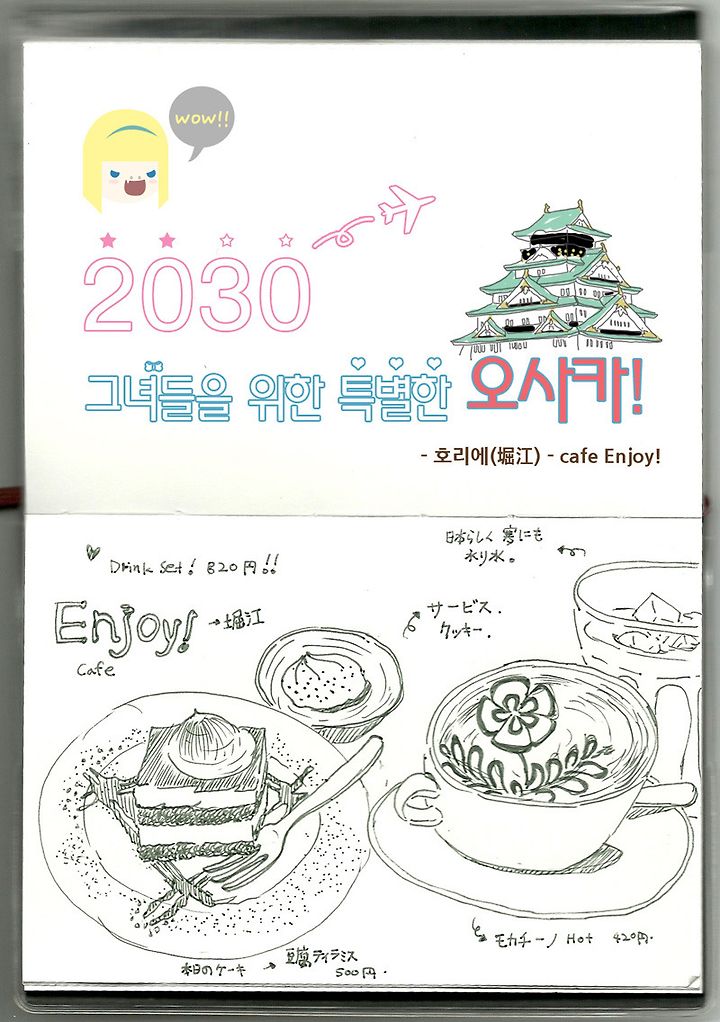 wow!!
2030
그녀들을 위한 특별한 오사카!
- 호리에(堀江) - cafe Enjoy!
日本らしく 寒にも
氷り水。
Drink Set! 820円!!
Enjoy! → 堀江
Cafe
サービス.
クッキー.
モカチーノ Hot 420円.
本日のケーキ → 豆腐ティラミス
500円.